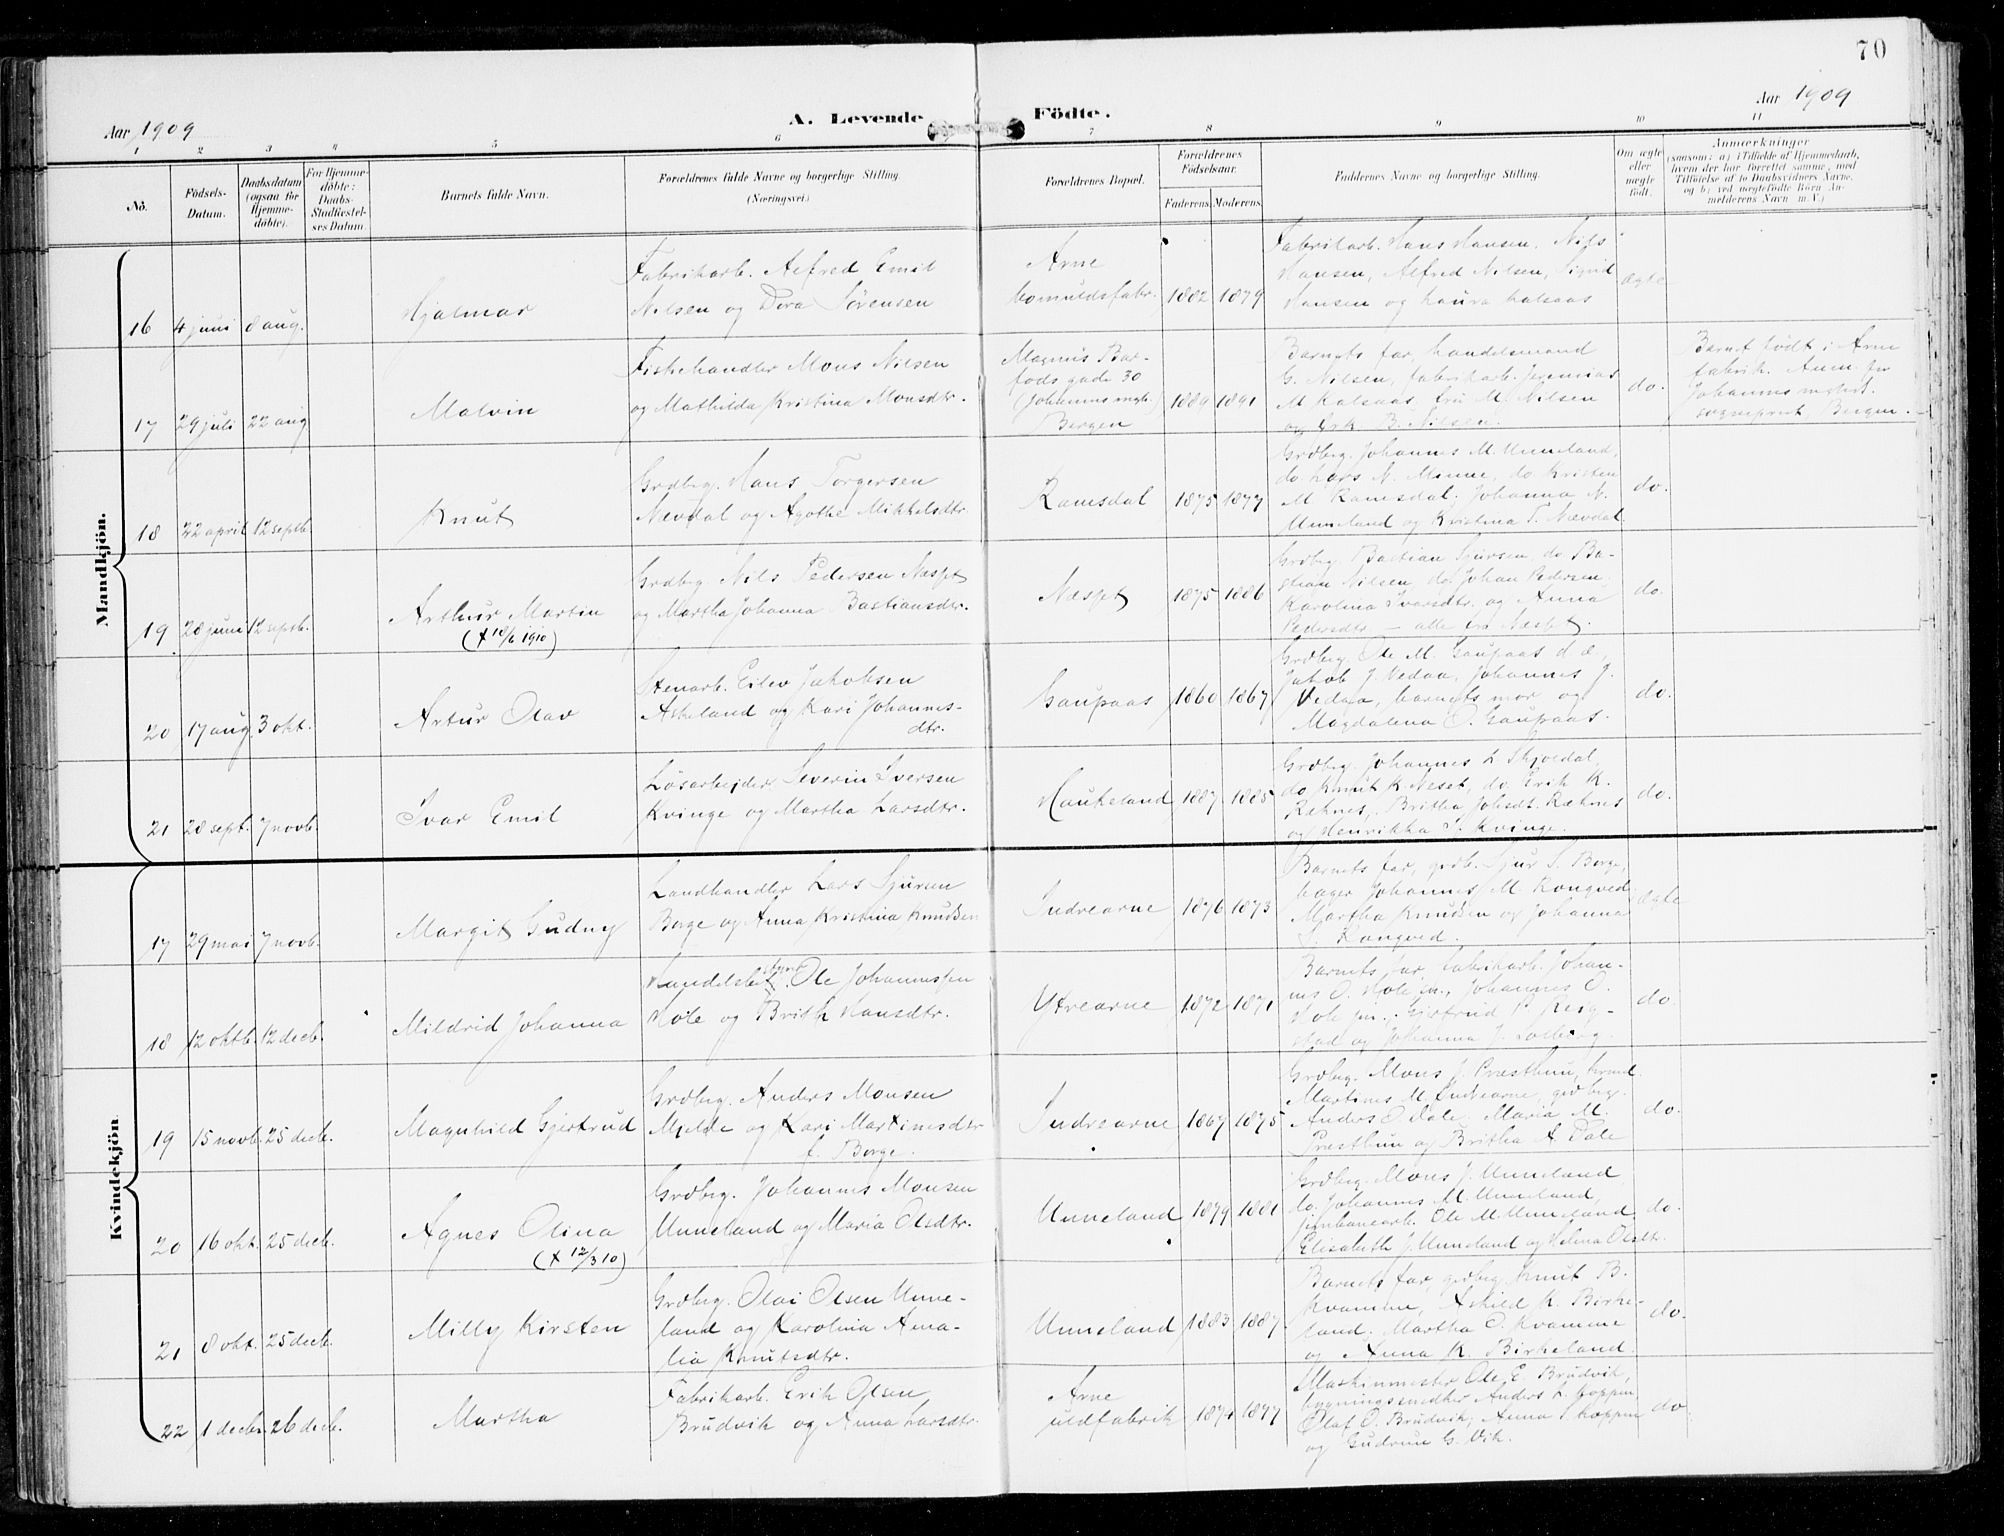 70
Aar 1909
A. Levende Födte.
Aar 1909
1 2 3 4 5 6 7 8 9 10 11
No.
Födsels-Datum.
Daabsdatum (ogsaa for Hjemmedøbte).
For Hjemmedøbte: Daabs-Stadfæstelses Datum
Barnets fulde Navn.
Forældrenes fulde Navne og borgerlige Stilling. (Næringsvei.)
Forældrenes Bopæl.
Forældrenes Födselsaar.
Faderens. Moderens.
Faddernes Navne og borgerlige Stilling.
Om ægte eller uægte født.
Anmærkninger
(saasom: a) i Tilfælde af Hjemmedaab, hvem der har forrettet samme, med Tilføielse af to Daabsvidners Navne, og b) ved uægtefödte Börn Anmelderens Navn m. V.)
Mandkjön.
16 4 juni 8 aug. Hjalmar
Fabrikarb. Alfred Emil
Nilsen og Dora Sørensen
Arne
bomuldsfabr. 1882 1879
Fabrikarb. Hans Hansen, Nils
Hansen, Alfred Nilsen, Sigrid
Hansen og Laura Kalsaas
ægte
17 29 juli 22 aug Malvin
Fiskehandler Mons Nilsen
og Mathilda Kristina Monsdtr.
Magnus Bar-
fods gade 30
(Johannes mgh.)
Bergen 1889 1891
Barnets far, handelsmand
G. Nilsen, fabrikarb. Jeremias
M Kalsaas, fru M. Nilsen
og frk B. Nilsen.
do.
Barnet født i Arne
fabrik. Anm. for
Johannes mgh.
sogneprest, Bergen.
18 22 april 12 septb. Knut
Grdbrg. Hans Torgersen
Nævdal og Agothe Mikkelsdtr.
Ramsdal 1875 1877
Grdbrg. Johannes M. Unneland,
do Lars N. Minne, do Kristen
M Ramsdal, Johanna N.
Unneland og Kristina T. Nævdal.
do.
19 28 juni 12 septb. Arthur Martin
(✝ 18/6 1910)
Grdbrg Nils Pedersen Næset
og Martha Johanna Bastiansdtr.
Næset 1875 1886
Grdbrg. Bastian Sjursen, do Ba-
stian Nilsen, do Johan Pedersen,
Karolina Ivarsdtr. og Anna
Pedersdtr – alle fra Næset.
do.
20 17 aug. 3 okt. Artur Olav
Stenarb. Eilev Jakobsen
Askeland og Kari Johannes-
dtr.
Gaupaas 1860 1867
Grdbrg. Ole M. Gaupaas d. æ.,
Jakob J. Vedaa, Johannes J.
Vedaa, barnets mor og
Magdalena O. Gaupaas.
do.
21 28 sept. 7 novb. Ivar Emil
Løsarbejder Severin Iversen
Kvinge og Martha Larsdtr.
Haukeland 1887 1885
Grdbrg. Johannes L Skjoldal,
do Knut K. Neset, do Erik K.
Ræknes, Britha Johsdt. Ræknes
og Henrikka I. Kvinge.
do.
Kvindekjön
17 29 mai 7 novb. Margit Gudny
Landhandler Lars Sjursen
Borge og Anna Kristina Knudsen
Indrearne 1876 1873
Barnets far, grdb. Sjur S. Borge,
bager Johannes M. Rongved
Martha Knudsen og Johanna
S. Rongved.
ægte
18 12 oktb. 12 decb. Mildrid Johanna
Handelsbetjent Ole Johannessen
Hole og Brith Hansdtr.
Ytrearne 1872 1871
Barnets far, fabrikarb. Johan-
nes O. Hole sn., Johannes O.
Hole jn., Gjertrud P. Reig-
stad og Johanna J.
do
19 15 novb. 25 decb. Magnhild Gjertrud
Grdbrg. Anders Monsen
Mjelde og Kari Martinesdtr
f. Borge.
Indrearne 1867 1875
Grdbrg. Mons J. Præsthun,
Martines M. Indrearne, grdbrg.
Anders O. Dale, Maria M.
Præsthun og Britha A. Dale
do.
20 16 okt. 25 decb. Agnes Olina
(✝ 12/3 10)
Grdbrg. Johannes Monsen
Unneland og Maria Olsdtr.
Unneland 1879 1881
Grdbrg. Mons J. Unneland
do. Johannes M. Unneland,
jernbanearb. Ole M. Unneland,
Elisabeth J. Unneland og Helina Olsdtr.
do.
21 8 okt. 25 decb. Milly Kirsten
Grdbrg. Olai Olsen Unne-
land og Karolina Ama-
lia Knutsdtr.
Unneland 1883 1887
Barnets far, grdbrg Knut B.
Kvamme, Askild K. Birke-
land, Martha O. Kvamme
og Anna K. Birkeland.
do.
22 1 decbr. 26 decb. Martha
Fabrikarb. Erik Olsen
Brudvik og Anna Larsdtr.
Arne
uldfabrik 1874 1877
Maskinmester Ole E. Brudvik,
bygningssnedker Anders L. Koppen
Olaf O. Brudvik, Anna S. Koppen
og Gudrun G. Vik.
do.